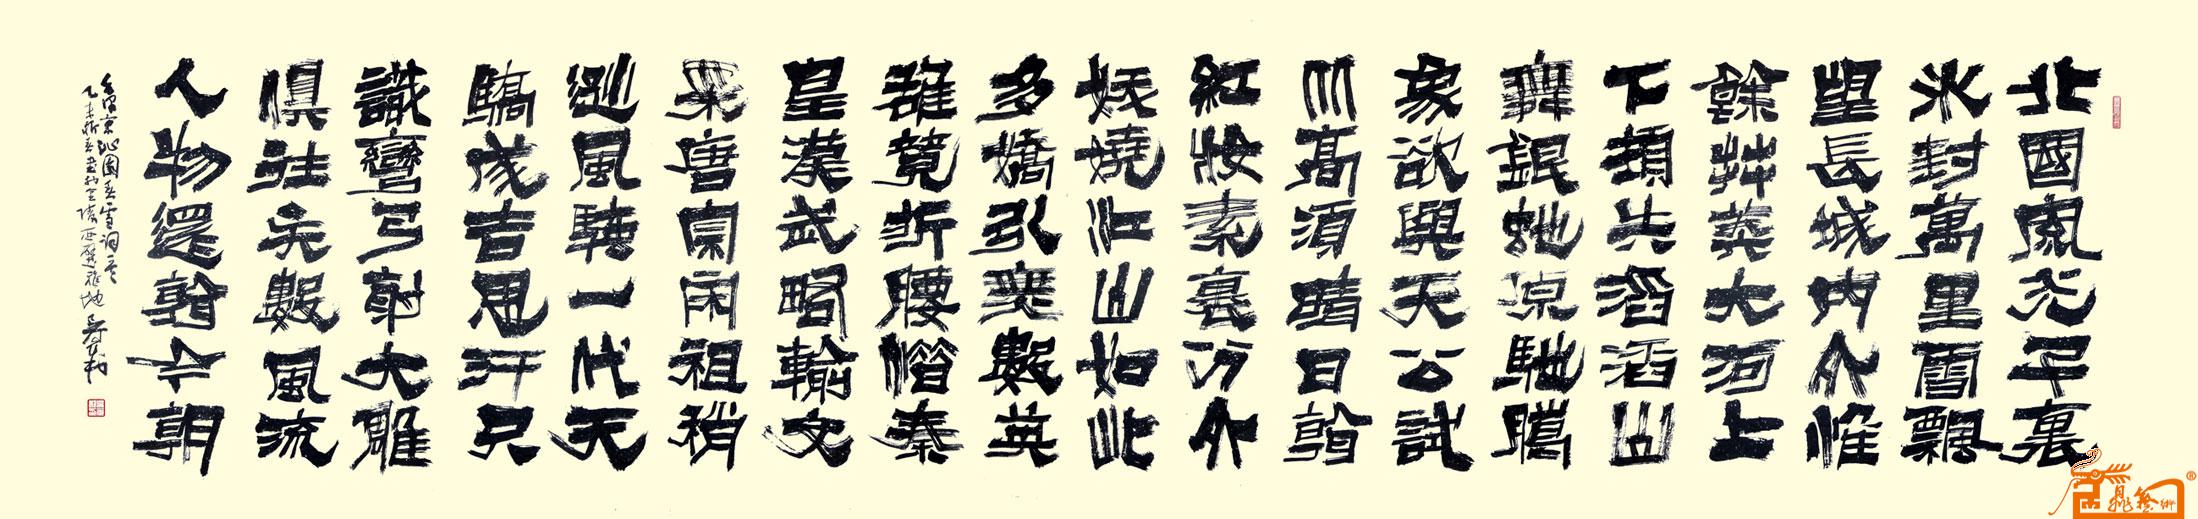 北國風光千裏
冰封萬里雪飄
望長城內外惟
餘莽莽大河上
下頓失滔滔山
舞銀蛇原馳臘
象欲與天公試
比高須晴日看
紅妝素裹分外
妖嬈江山如此
多嬌引無數英
雄競折腰惜秦
皇漢武略輸文
采唐宗宋祖稍
遜風騷一代天
驕成吉思汗只
識彎弓射大雕
俱往矣數風流
人物還看今朝
毛澤東沁園春雪詞一首
乙未新春書於金陵